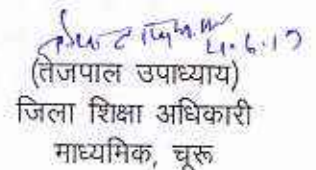 4.6.17
(तेजपाल उपाध्याय)
जिला शिक्षा अधिकारी
माध्यमिक, चूरू